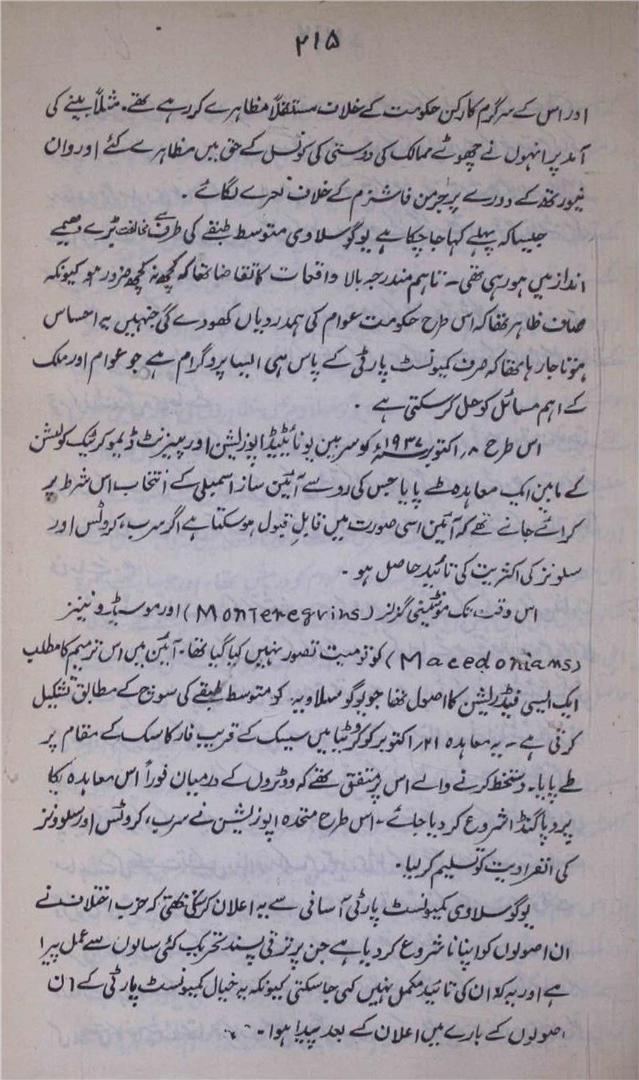 ۲۱۵
اور اس کے سرگرم کارکن حکومت کے خلاف مستقلاً مظاہرے کر رہے تھے۔ مثلاً بینے کی
آمد پر انہوں نے چھوٹے ممالک کی دوستی کی کونسل کے حق میں مظاہرے کئے اور وان
نیورتھ کے دورے پر جرمن فاشزم کے خلاف نعرے لگائے۔
جیسا کہ پہلے کہا جا چکا ہے یوگوسلاوی متوسط طبقے کی طرف سے مخالفت بڑے دھیمے
انداز میں ہو رہی تھی۔ تاہم مندرجہ بالا واقعات کا تقاضا تھا کہ کچھ نہ کچھ ضرور ہو کیونکہ
صاف ظاہر تھا کہ اس طرح حکومت عوام کی ہمدردیاں کھو دے گی جنہیں یہ احساس
ہوتا جا رہا تھا کہ صرف کمیونسٹ پارٹی کے پاس ہی ایسا پروگرام ہے جو عوام اور ملک
کے اہم مسائل کو حل کر سکتی ہے۔
اس طرح ۸؍ اکتوبر ۱۹۳۷ء کو سربین یونائیٹڈ اپوزیشن اور پیزنٹ ڈیموکریٹک کولیشن
کے مابین ایک معاہدہ طے پایا جس کی رو سے آئین ساز اسمبلی کے انتخاب اس شرط پر
کرائے جانے تھے کہ آئین اسی صورت میں قابلِ قبول ہو سکتا ہے اگر سرب، کروٹس اور
سلونز کی اکثریت کی تائید حاصل ہو۔
اس وقت تک مونٹینی گرنز (Monteregrins) اور موسیڈونینز
(Macedonians) کو قومیت تصور نہیں کیا گیا تھا۔ آئین میں اس ترمیم کا مطلب
ایک ایسی فیڈریشن کا اصول تھا جو یوگوسلاویہ کو متوسط طبقے کی سوچ کے مطابق تشکیل
کرتی ہے۔ یہ معاہدہ ۲۱؍ اکتوبر کو کروٹیا میں سیسک کے قریب فارکاسک کے مقام پر
طے پایا۔ دستخط کرنے والے اس پر متفق تھے کہ ووٹروں کے درمیان فوراً اس معاہدہ کا
پروپاگنڈا شروع کر دیا جائے۔ اس طرح متحدہ اپوزیشن نے سرب، کروٹس اور سلوونز
کی انفرادیت کو تسلیم کر لیا۔
یوگوسلاوی کمیونسٹ پارٹی آسانی سے یہ اعلان کر سکتی تھی کہ حزب اختلاف نے
ان اصولوں کو اپنانا شروع کر دیا ہے جن پر ترقی پسند تحریک کئی سالوں سے عمل پیرا
ہے اور یہ کہ ان کی تائید مکمل نہیں کہی جا سکتی کیونکہ یہ خیال کمیونسٹ پارٹی کے ان
اصولوں کے بارے میں اعلان کے بعد پیدا ہوا۔